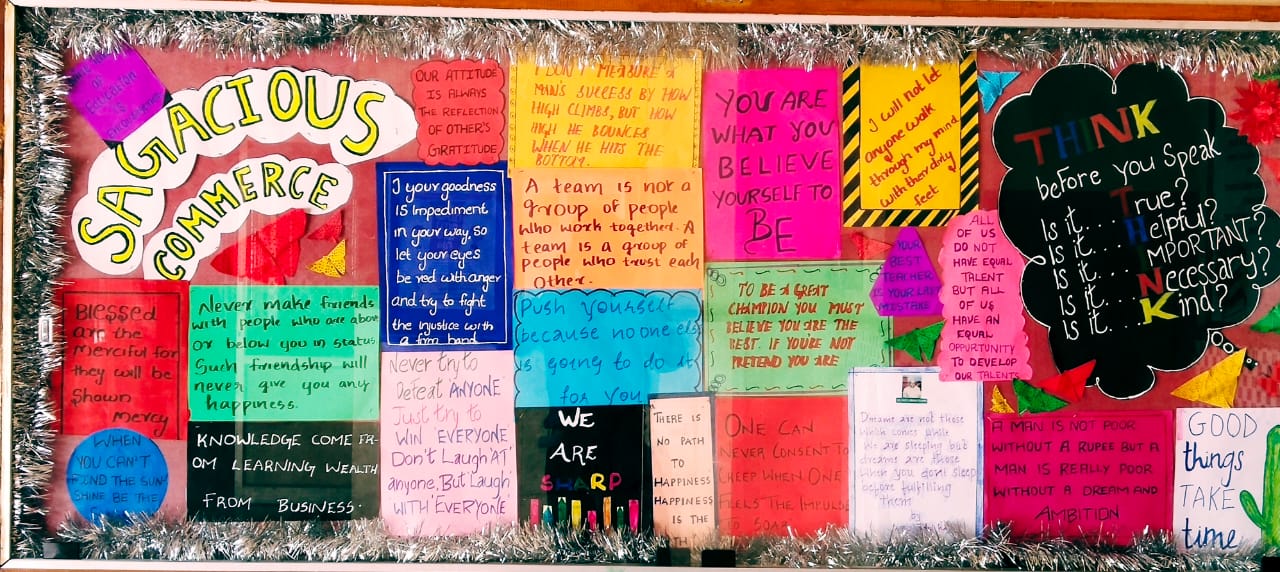 Education
IS
SAGACIOUS
COMMERCE
OUR ATTITUDE
IS ALWAYS
THE REFLECTION
OF OTHER'S
GRATITUDE
I DON'T MEASURE a
MAN'S SUCCESS BY HOW
HIGH CLIMBS, BUT HOW
HIGH HE BOUNCES
WHEN HE HITS THE
BOTTOM.
YOU ARE
WHAT YOU
BELIEVE
YOURSELF TO
BE
I will not let
anyone walk
through my mind
with their dirty
feet
THINK
before you Speak
Is it.... True?
Is it.... Helpful?
Is it.... IMPORTANT?
Is it.... Necessary?
Is it.... Kind?
I your goodness
IS Impediment
in your way, so
let your eyes
be red with anger
and try to fight
the injustice with
a firm hand
A team IS not a
group of people
who work together. A
team is a group of
people who trust each
Other.
YOUR
BEST
TEACHER
IS YOUR LAST
MISTAKE
ALL
OF US
DO NOT
HAVE EQUAL
TALENT
BUT ALL
OF US
HAVE AN
EQUAL
OPPURTUNITY
TO DEVELOP
OUR TALENTS
Blessed
are the
merciful for
they will be
Shown
Mercy
Never make friends
with people who are above
or below you in status
Such friendship will
never give you any
happiness.
Push yourself
because no one else
is going to do it
for you
TO BE A GREAT
CHAMPION YOU MUST
BELIEVE YOU ARE THE
BEST. IF YOU'RE NOT
PRETEND YOU ARE
WHEN
YOU CAN'T
FIND THE SUN
SHINE BE THE
KNOWLEDGE COME FR-
OM LEARNING WEALTH
FROM BUSINESS.
Never try to
Defeat ANYONE
Just try to
WIN 'EVERYONE
Don't Laugh 'AT'
anyone, But Laugh
WITH 'EVERYONE
WE
ARE
SHARP
THERE IS
NO PATH
TO
HAPPINESS
HAPPINESS
IS THE
ONE CAN
NEVER CONSENT TO
CREEP WHEN ONE
FEELS THE IMPULSE
TO SOAR
Dreams are not those
which comes while
We are sleeping but
dreams are those
when you dont sleep
before fulfilling
Them
by
A MAN IS NOT POOR
WITHOUT A RUPEE BUT A
MAN IS REALLY POOR
WITHOUT A DREAM AND
AMBITION
GOOD
things
TAKE
time